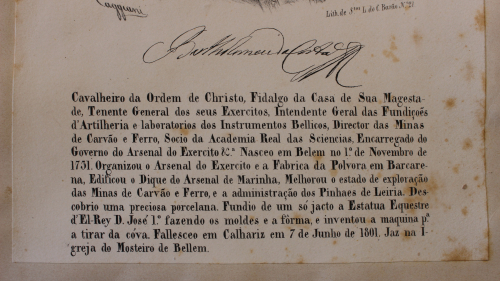 Caggiani
Lith. de 3.mo L. do C. Barão N.º 21
Bartholomeu da Costa
Cavalheiro da Ordem de Christo, Fidalgo da Casa de Sua Magesta-
de, Tenente General dos seus Exercitos, Intendente Geral das Fundições
d'Artilheria e laboratorios dos Instrumentos Bellicos, Director das Minas
de Carvão e Ferro, Socio da Academia Real das Sciencias, Encarregado do
Governo do Arsenal do Exercito &.ª Nasceo em Belem no 1.º de Novembro de
1731. Organizou o Arsenal do Exercito e a Fabrica da Polvora em Barcare-
na, Edificou o Dique do Arsenal de Marinha, Melhorou o estado de exploração
das Minas de Carvão e Ferro, e a administração dos Pinhaes de Leiria. Des-
cobrio uma preciosa porcelana. Fundio de um só jacto a Estatua Equestre
d'El-Rey D. José 1.º fazendo os moldes e a fôrma, e inventou a maquina p.ª
a tirar da cóva. Fallesceo em Calhariz em 7 de Junho de 1801. Jaz na I-
greja do Mosteiro de Bellem.